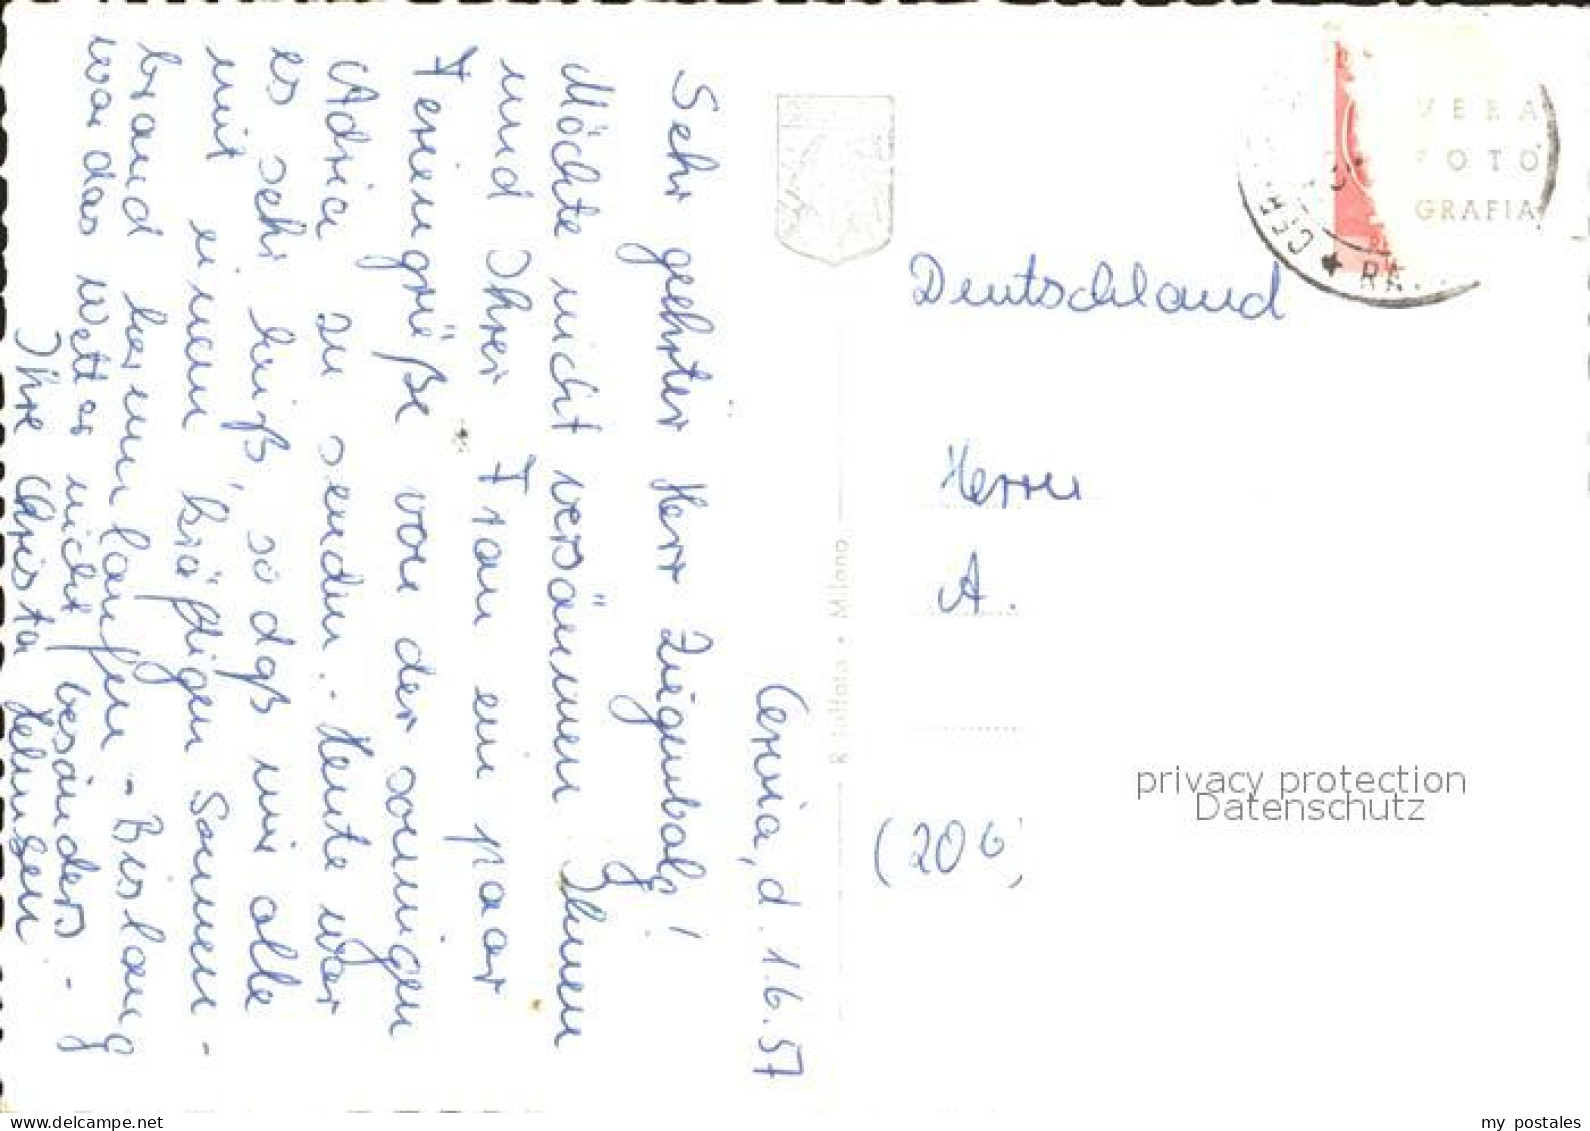 Cervia, d. 1.6.57
Sehr geehrter Herr Ziegenbalg!
Möchte nicht versäumen Ihnen
und Ihrer Frau ein paar
Feriengrüße von der sonnigen
Adria zu senden.- Heute war
es sehr heiß, so daß wir alle
mit einem kräftigen Sonnen-
brand herumlaufen - Bislang
war das Wetter nicht besonders -
Ihre Christa Helmsen
R
Milano
VERA
FOTO
GRAFIA
Deutschland
Herrn
A.
(20b)
privacy protection
Datenschutz
my postales